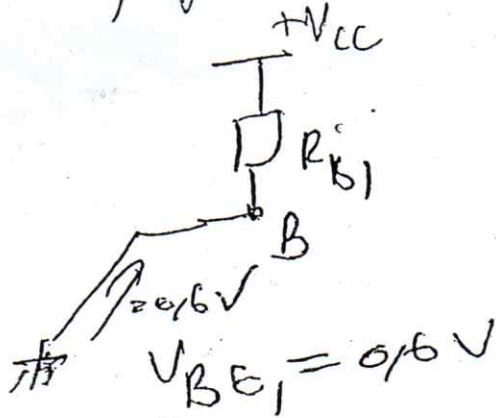 +VCC
RB1
B
0,6V
VBE1 = 0,6 V